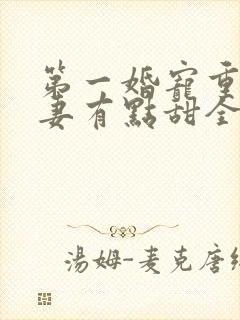 第一婚寵重
妻有點甜全
湯姆-麦克唐